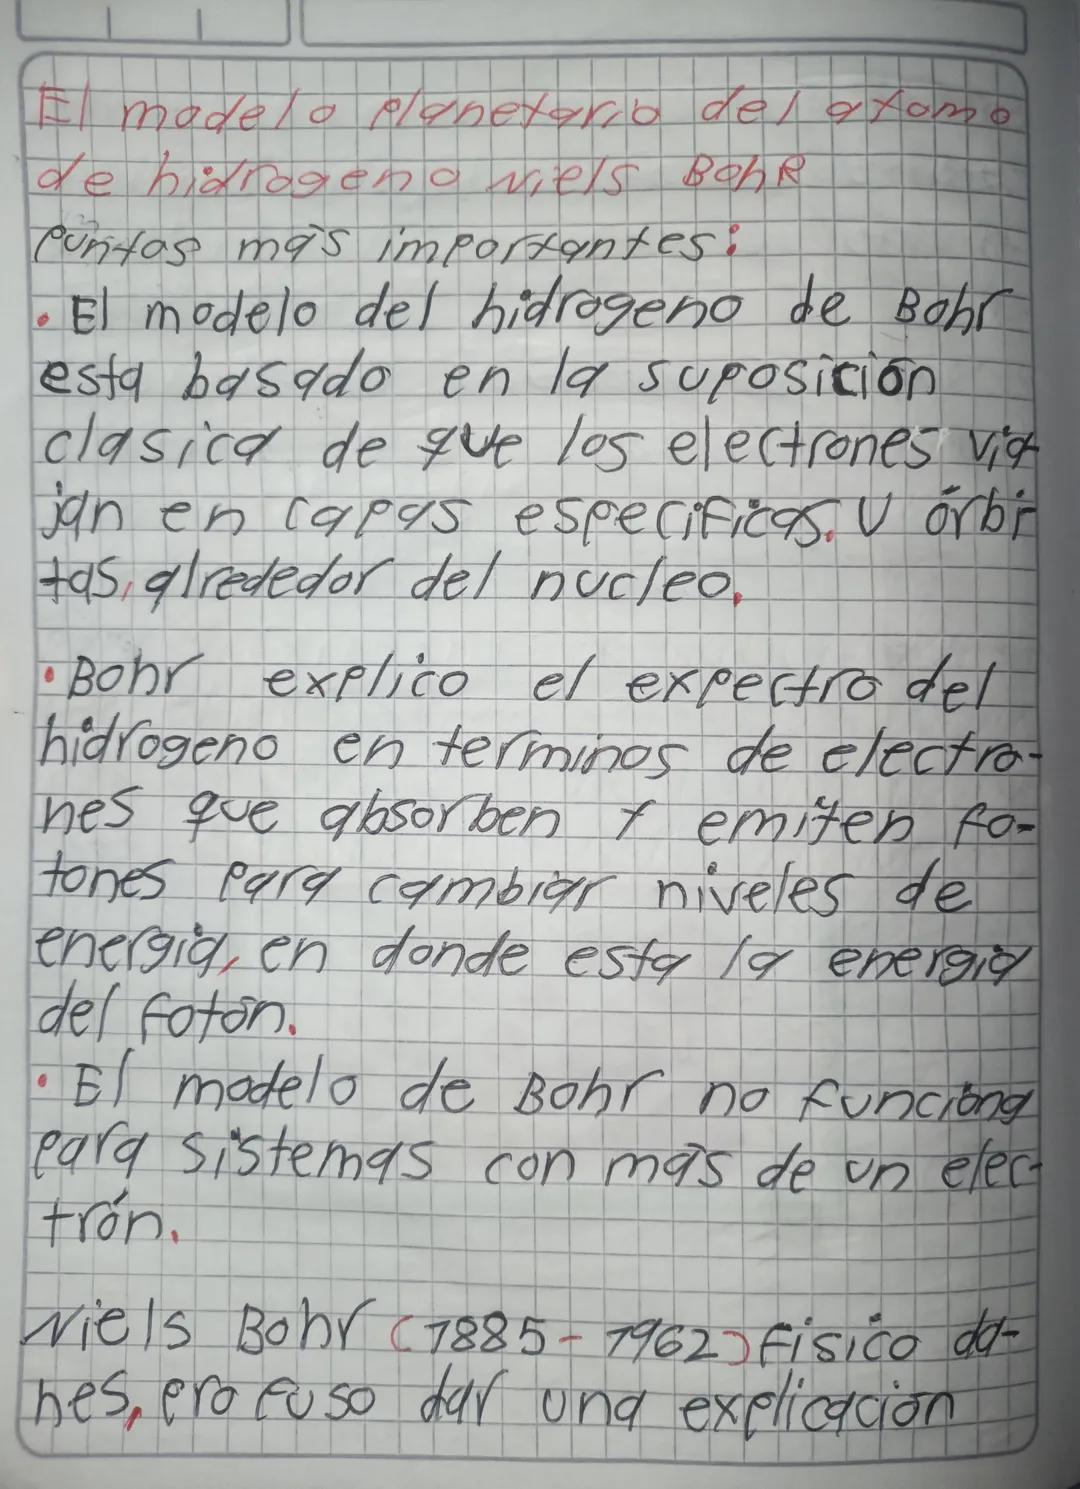 El modelo planetario del atomo
de hidrogeno Niels BohR
Puntos más importantes:
• El modelo del hidrogeno de Bohr
esta basado en la suposición
clasica de que los electrones via
jan en capas especificas. U órbi
tas, alrededor del nucleo.
• Bohr explico el expectro del
hidrogeno en terminos de electro-
nes que absorben y emiten fo-
tones para cambiar niveles de
energia, en donde esta la energia
del fotón.
• El modelo de Bohr no funciona
para sistemas con más de un elec-
trón.
Niels Bohr (1885-1962) fisico da-
nes, profuso dar una explicación